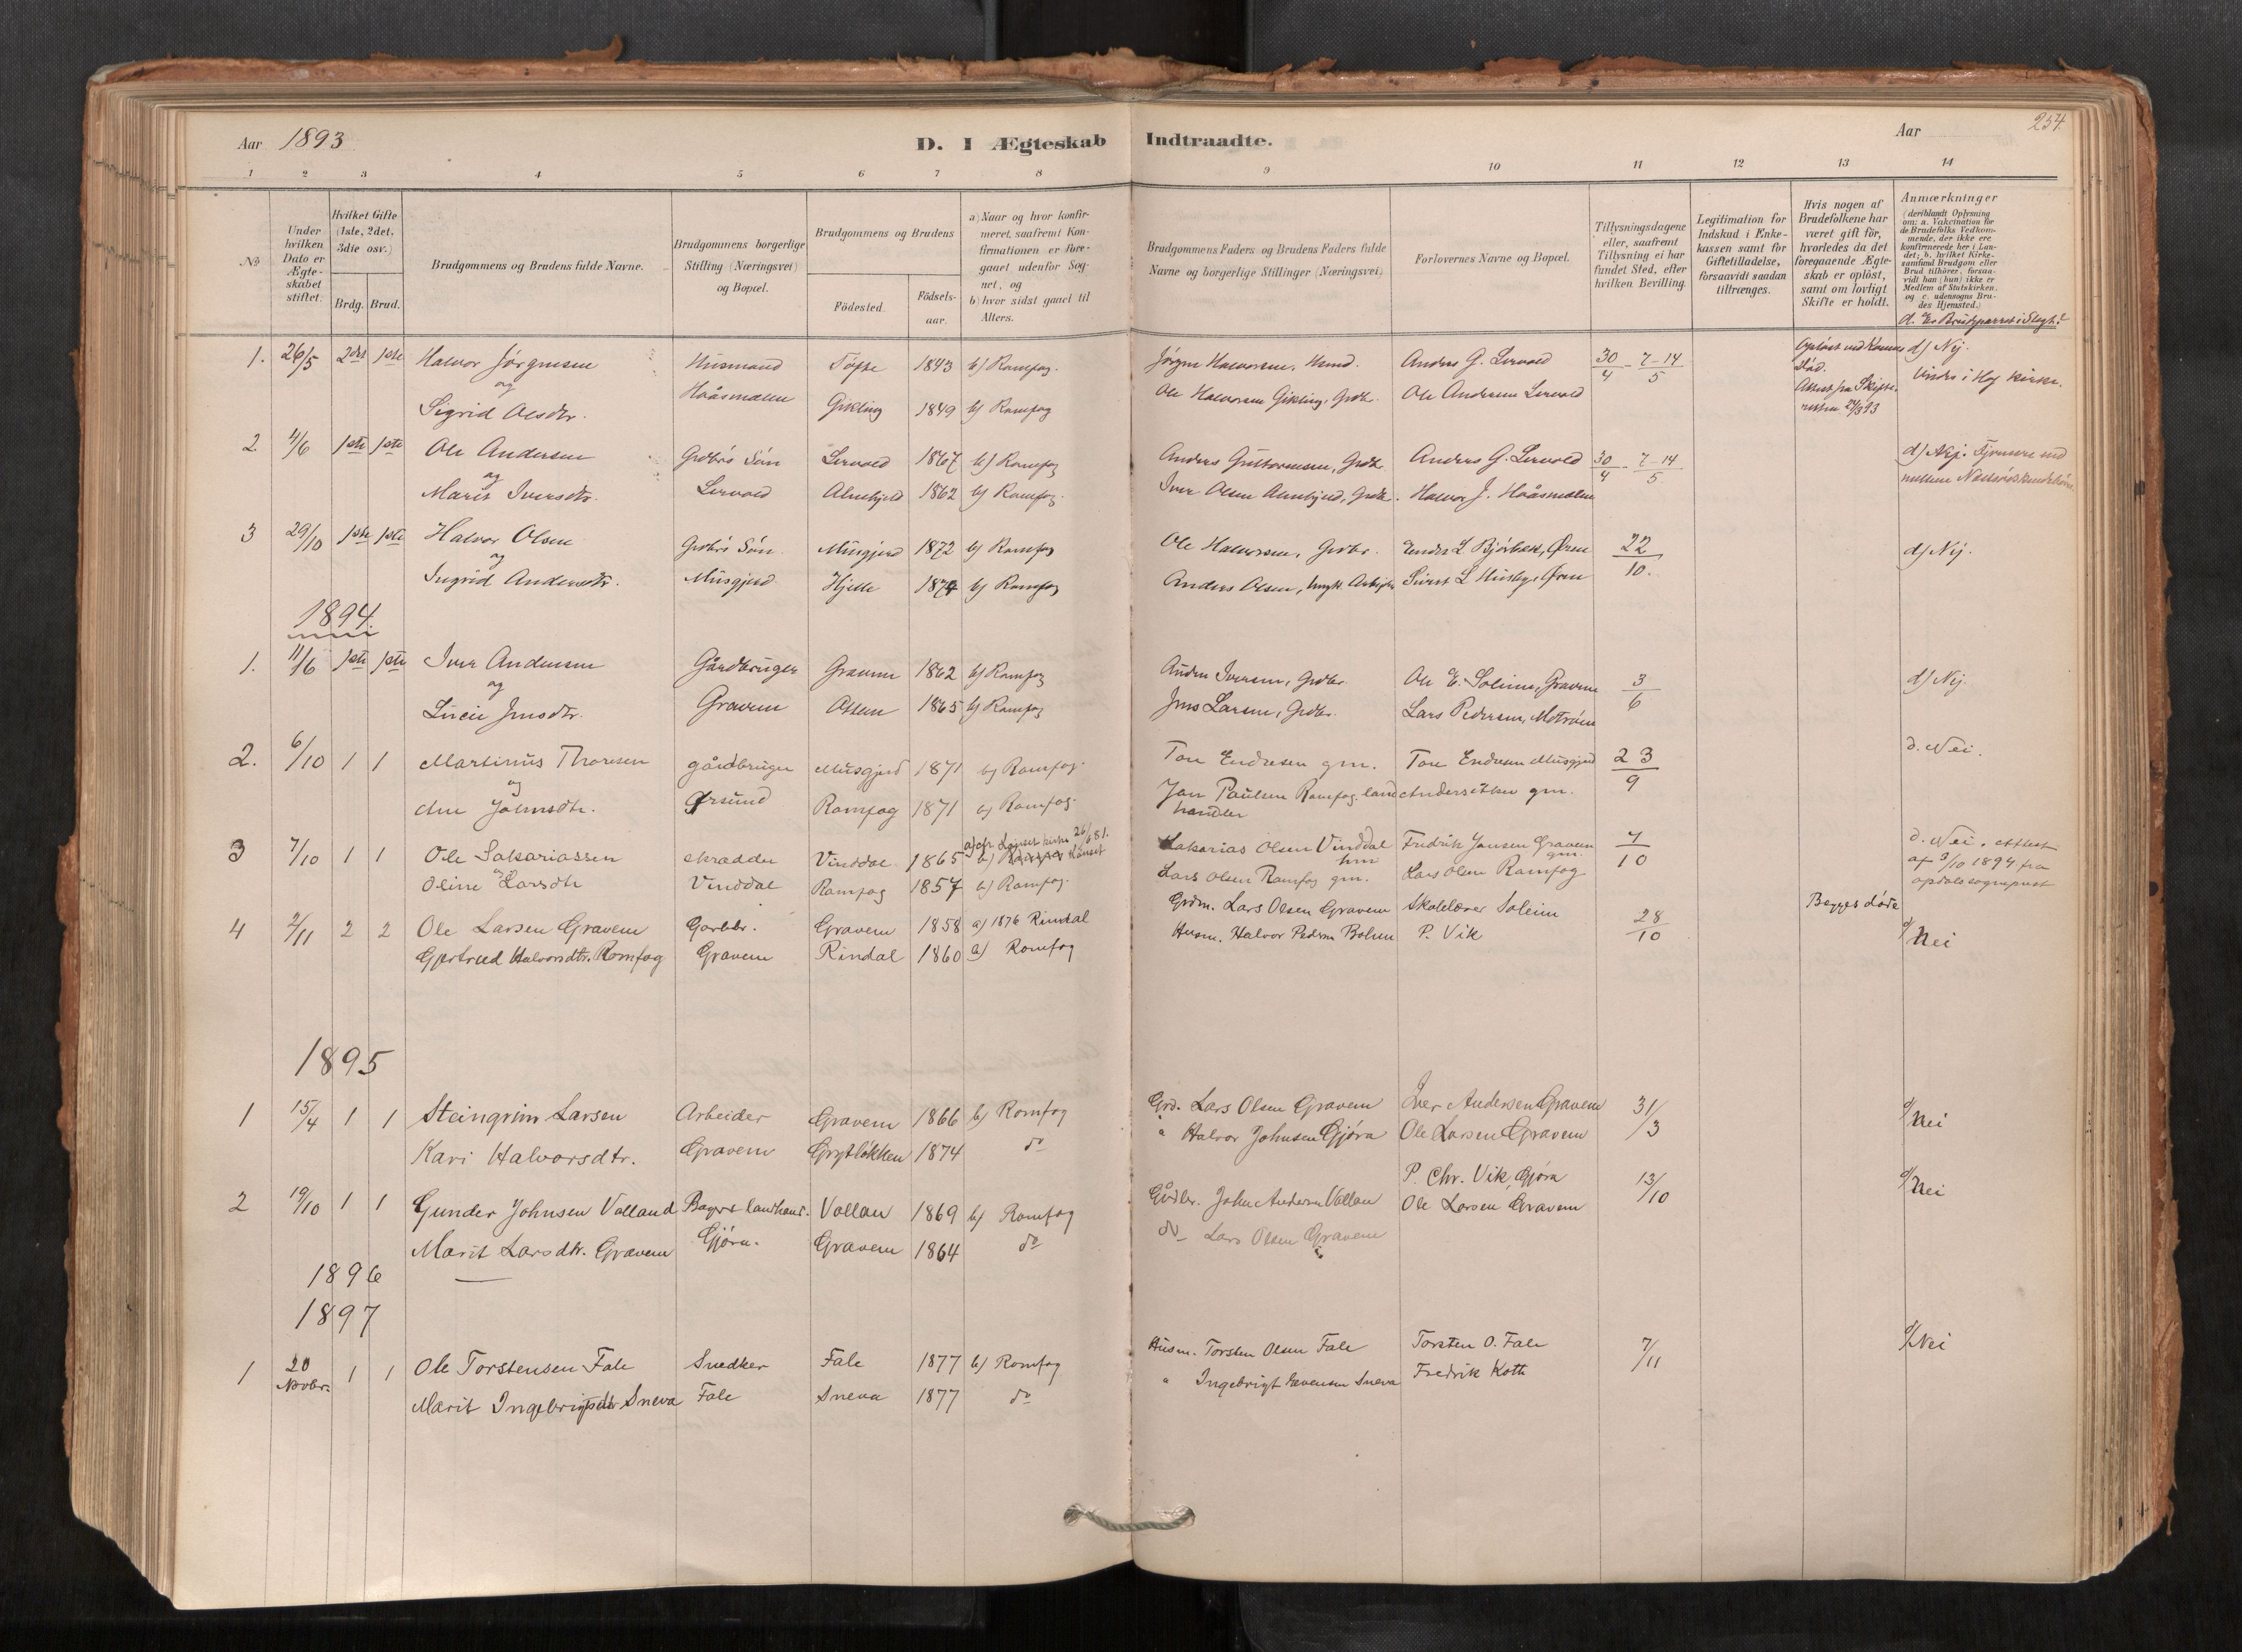 Aar 1893 D. I Ægteskab Indtraadte. Aar 254.
1 2 3 4 5 6 7 8 9 10 11 12 13 14
No
Under hvilken Dato er Ægteskabet stiftet.
Hvilket Gifte (1ste, 2det, 3die osv.)
Brdg. Brud.
Brudgommens og Brudens fulde Navne.
Brudgommens borgerlige Stilling (Næringsvei) og Bopæl.
Brudgommens og Brudens
Födested.
Födsels-aar.
a) Naar og hvor konfirmeret, saafremt Konfirmationen er foregaaet udenfor Sognet, og
b) hvor sidst gaaet til Alters.
Brudgommens Faders og Brudens Faders fulde Navne og borgerlige Stillinger (Næringsvei)
Forlovernes Navne og Bopæl.
Tillysningsdagene eller, saafremt Tillysning ei har fundet Sted, efter hvilken Bevilling.
Legitimation for Indskud i Enkekassen samt for Giftetilladelse, forsaavidt saadan tiltrænges.
Hvis nogen af Brudefolkene har været gift för, hvorledes da det foregaaende Ægteskab er oplöst, samt om lovligt Skifte er holdt.
Anmærkninger
(deriblandt Oplysning om: a. Vakcination for de Brudefolks Vedkommende, der ikke ere konfirmerede her i Landet; b. hvilket Kirkesamfund Brudgom eller Brud tilhörer, forsaavidt han (hun) ikke er Medlem af Statskirken. og c. udensogns Brudes Hjemsted.)
d. Er Brudeparret i Slegt?
1. 26/5 2det 1ste Halvor Jørgensen Husmand Tofte 1843 b) Romfog. Jørgen Halvorsen, Husmd. Anders G. Lervold 30/4 - 7-14/5 Oplöst ved Konens Död. d) Nej.
og Haåsmælen Attest fra Skifteretten 24/3 93 Viede i Hof Kirke.
Sigrid Olsdtr. Gikling 1849 b) Romfog Ole Halvorsen Gikling, Grdbr. Ole Andersen Lervold
2 4/6 1ste 1ste Ole Andersen Grdbrs Sön Lervold 1867 b) Romfog Anders Guttormsen, Grdbr. Anders G. Lervold 30/4 - 7-14/5 d) Nej.
og
Marit Iversdtr. Lervold Almskjeld 1862 b) Romfog. Iver Olsen Almskjeld, Grdbr. Halvor J. Haåsmælen
3 29/10 1ste 1ste Halvor Olsen Grdbrs Sön Musgjerd 1872 b) Romfog Ole Halvorsen, Grdbr. Endre L Bjørbæk, Øren 22/10. d) Nej.
og
Ingrid Andersdtr. Musgjerd Hjelle 1874 b) Romfog Anders Olsen, Sivert L Husby, Øren
1894.
1. 11/6 1ste 1ste Iver Andersen Gårdbruger Gravem 1862 b) Romfog Anders Iversen, Grdbr. Ole E. Soleim, Gravem 3/6 d) Nej.
og
Lucie Jensdtr. Gravem 1865 b) Romfog Jens Larsen, Grdbr. Lars Pedersen,
2. 6/10 1 1 Martinus Thoresen gårdbruger Musgjerd 1871 b) Romfog. Tore Endresen gm. Tore Endresen Musgjerd 23/9 d. Nei.
og
Ane Jonsdtr. Ørsund Romfog 1871 b) Romfog. Jon Paulsen Romfog. landhandler
3 7/10 1 1 Ole Sakariassen skrædder Vinddal 1865 Sakarias Olsen Vinddal hm Fredrik Jansen Gravem gm. 7/10 d. Nei. attest af 3/10 1894 fra opdals sognepræst
og
Oline Larsdtr Vinddal Romfog 1857 b) Romfog. Lars Olsen Romfog gm. Lars Olsen Romfog
4 2/11 2 2 Ole Larsen Gravem Garbbr. Gravem 1858 a) 1876 Rindal Grdm. Lars Olsen Gravem Skolelærer Soleim 28/10 Begges döde d/ Nei
Gjertrud Halvorsdtr. Romfog Gravem Rindal 1860 b) Romfog Husm. Halvor Pedersen Bolme P. Vik
1895
1 15/4 1 1 Steingrim Larsen Arbeider Gravem 1866 b) Romfog Grd. Lars Olsen Gravem Iver Andersen Gravem 31/3 d/ Nei
Kari Halvorsdtr. Gravem Grytløkken 1874 do " Halvor Johnsen Gjöra Ole Larsen Gravem
2 19/10 1 1 Gunder Johnsen Volland Landhand. Vollan 1869 b) Romfog Gårdbr. John Andersen Vollan P. Chr. Vik, Gjöra 13/10 d/ Nei
Marit Larsdtr. Gravem Gjöra. Gravem 1864 do do Lars Olsen Gravem Ole Larsen Gravem
1896 —
1897
1 20 Novbr. 1 1 Ole Torstensen Fale Snedker Fale 1877 b) Romfog Husm. Torsten Olsen Fale Torsten O. Fale 7/11 d/ Nei
Marit Ingebrigtsdtr Sneva Fale Sneva 1877 do " Ingebrigt Evensen Sneva Fredrik Koth